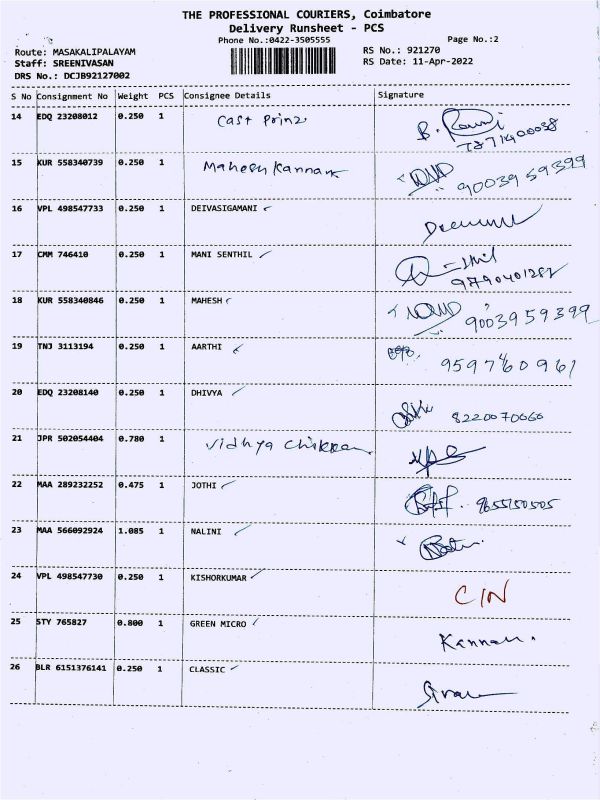 THE PROFESSIONAL COURIERS, Coimbatore
Delivery Runsheet - PCS
Phone No.:0422-3505555
Page No.:2
Route: MASAKALIPALAYAM
RS No.: 921270
Staff: SREENIVASAN
RS Date: 11-Apr-2022
DRS No.: DCJB92127002
S No Consignment No Weight PCS Consignee Details Signature
14 EDQ 23208012 0.250 1 Cast Prinz
B.
7871400038
15 KUR 558340739 0.250 1 Mahesh Kannan
9003959399
16 VPL 498547733 0.250 1 DEIVASIGAMANI
17 CMM 746410 0.250 1 MANI SENTHIL
9790401282
18 KUR 558340846 0.250 1 MAHESH
9003959399
19 TNJ 3113194 0.250 1 AARTHI
9597460961
20 EDQ 23208140 0.250 1 DHIVYA
8220070660
21 JPR 502054404 0.780 1 Vidhya
22 MAA 289232252 0.475 1 JOTHI
9655150505
23 MAA 566092924 1.085 1 NALINI
24 VPL 498547730 0.250 1 KISHORKUMAR
C/N
25 STY 765827 0.800 1 GREEN MICRO
Kannan.
26 BLR 6151376141 0.250 1 CLASSIC